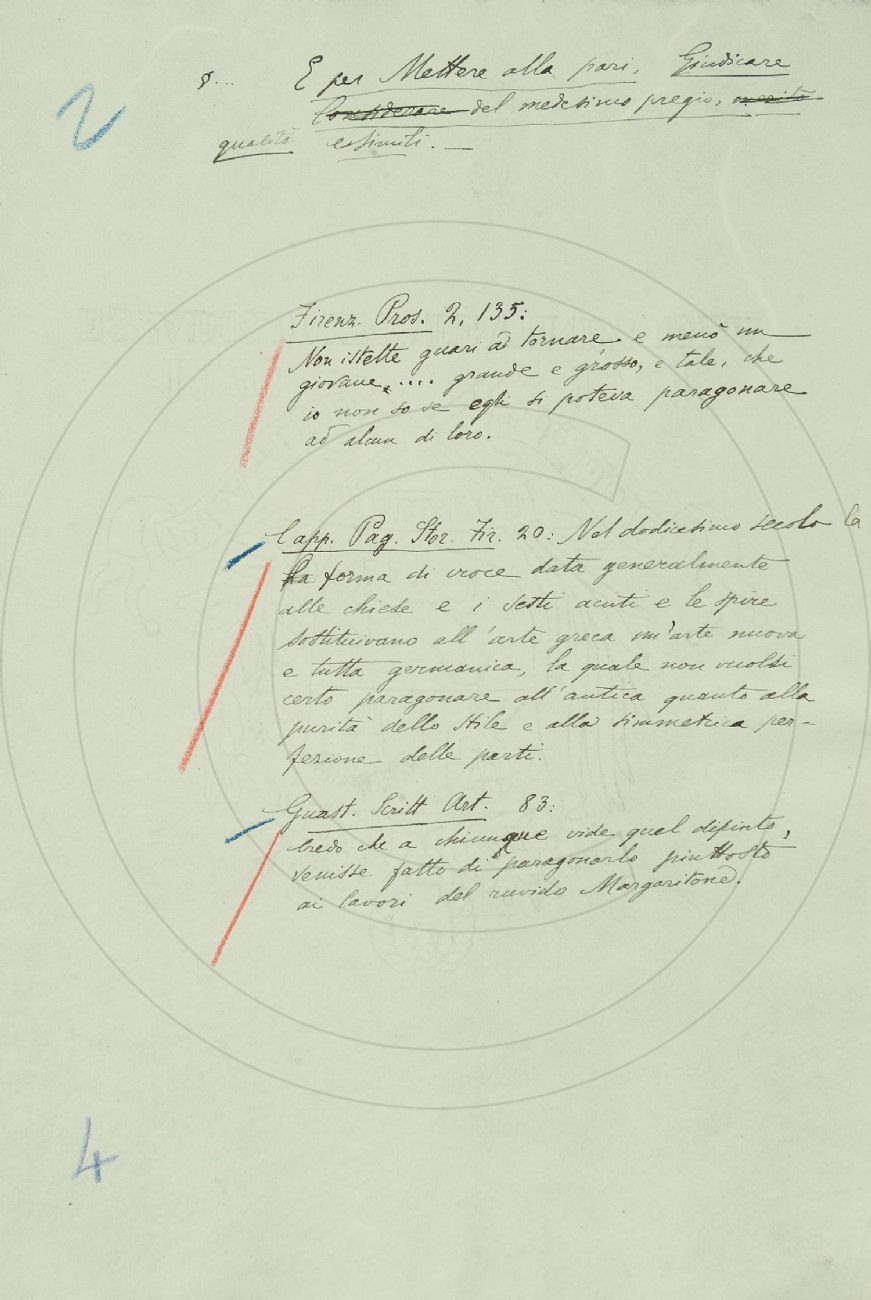 2
§... E per Mettere alla pari, Giudicare
Considerare del medesimo pregio, merito
qualità e simili. —
Firenz. Pros. 2, 135:
Non istette guari ad tornare e menò un
giovane, .... grande e grosso, e tale, che
io non so se egli si poteva paragonare
ad alcun di loro.
Capp. Pag. Stor. Fir. 20: Nel dodicesimo secolo la
la forma di croce data generalmente
alle chiese e i sesti acuti e le spire
sostituivano all'arte greca un'arte nuova
e tutta germanica, la quale non vuolsi
certo paragonare all'antica quanto alla
purità dello stile e alla simmetrica per-
fezione delle parti.
Guast. Scritt. Art. 83:
Credo che a chiunque vide quel dipinto,
venisse fatto di paragonarlo piuttosto
ai lavori del ruvido Margaritone.
4